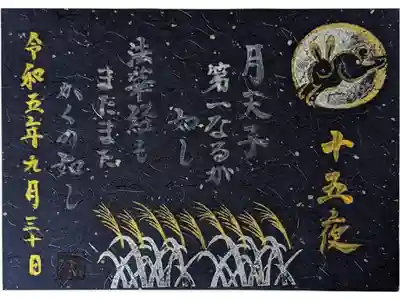 十五夜
月天子
第一なるが
如し
法華経も
またまた
かくの如し
令和五年九月三十日